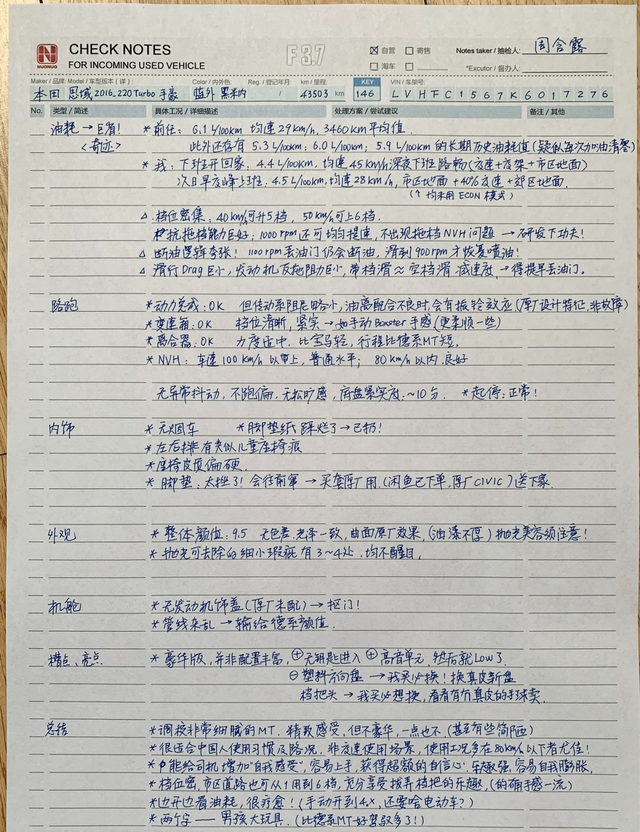 CHECK NOTES
FOR INCOMING USED VEHICLE
NUONUO
F37
自营 寄售
海车
Notes taker / 抽检人: 周含露
*Excutor / 督办人:
Maker / 品牌 Model / 车型版本 (详) Color / 内外色 Reg. / 登记年月 km / 里程 KEY VIN / 车架号
本田 思域2016 220Turbo 手豪 蓝外 黑米内 43503 km 146 LVHFC1567K6017276
No. 类型 / 简述 具体工况 / 详细描述 处理方案 / 尝试建议 备注 / 其他
油耗 → 巨省! * 前任: 6.1 L/100km 均速29km/h, 3460km平均值.
<奇迹> 此外还存有 5.3 L/100km; 6.0 L/100km; 5.9 L/100km 的长期历史油耗值 (疑似每次加油清零)
* 我: 下班开回家, 4.4 L/100km, 均速45km/h 深夜下班路畅 (高速+高架+市区地面)
次日早高峰上班: 4.5 L/100km, 均速28km/h, 市区地面+40%高速+郊区地面.
(↑ 均未用 ECON 模式)
△ 档位密集: 40km/h可升5档, 50km/h可上6档.
抗拖档能力巨好; 1000rpm还可均匀提速, 不出现拖档NVH问题 → 研发下功夫!
△ 断油逻辑夸张! 1100rpm丢油门仍会断油, 滑到900rpm才恢复喷油!
△ 滑行Drag巨小, 发动机反拖阻力巨小, 带档滑≈空档滑 减速度 → 得提早丢油门.
路跑 * 动力完成: OK 但传动系阻尼略小, 油离配合不良时会有扳铃效应 (原厂设计特征, 非故障)
* 变速箱: OK 档位清晰, 紧实 → 如手动Boxster手感 (更柔顺一些)
* 离合器: OK 力度适中, 比宝马轻, 行程比德系MT短.
* NVH: 车速100km/h以上, 普通水平; 80km/h以内, 良好
无异常抖动, 不跑偏, 无松旷感, 底盘紧实度: ~10分. * 起停: 正常!
内饰 * 无烟车 * 脚垫纸, 踩烂了 → 已扔!
* 左后排有类似儿童座椅痕
* 座椅皮质偏硬.
* 脚垫: 太挫了! 会往前窜 → 买套原厂用. (闲鱼已下单, 原厂CIVIC) 送下家.
外观 * 整体颜值: 9.5 无色差, 光泽一致, 曲面原厂效果, (油漆不厚) 抛光美容须注意!
* 抛光可去除的细小瑕疵有3~4处, 均不醒目.
机舱 * 无发动机饰盖 (原厂未配) → 抠门!
* 管线杂乱 → 输给德系颜值.
槽点、亮点 * 豪华版, 并非配置丰富, ⊕无钥匙进入 ⊕高音单元, 然后就Low了.
⊖塑料方向盘 → 我买必换! 换真皮新盘
档把头 → 我买必想换, 看看有冇真皮的手球卖.
总结 * 调校非常细腻的MT. 精致感受, 但不豪华, 一点也不. (甚至有些简陋)
* 很适合中国人使用习惯及路况, 非高速使用场景, 使用工况多在80km/h以下者尤佳!
* 能给司机增加“自我感受”, 容易上手, 获得超额的自信心, 乐趣强, 容易自我膨胀,
* 档位密, 市区道路也可从1用到6档, 充分享受拨弄档把的乐趣, (的确手感一流)
* 边开边看油耗, 很疗愈! (手动开到4.x, 还要啥电动车?)
* 两个字 —— 男孩大玩具. (比德系MT好驾驭多了!)